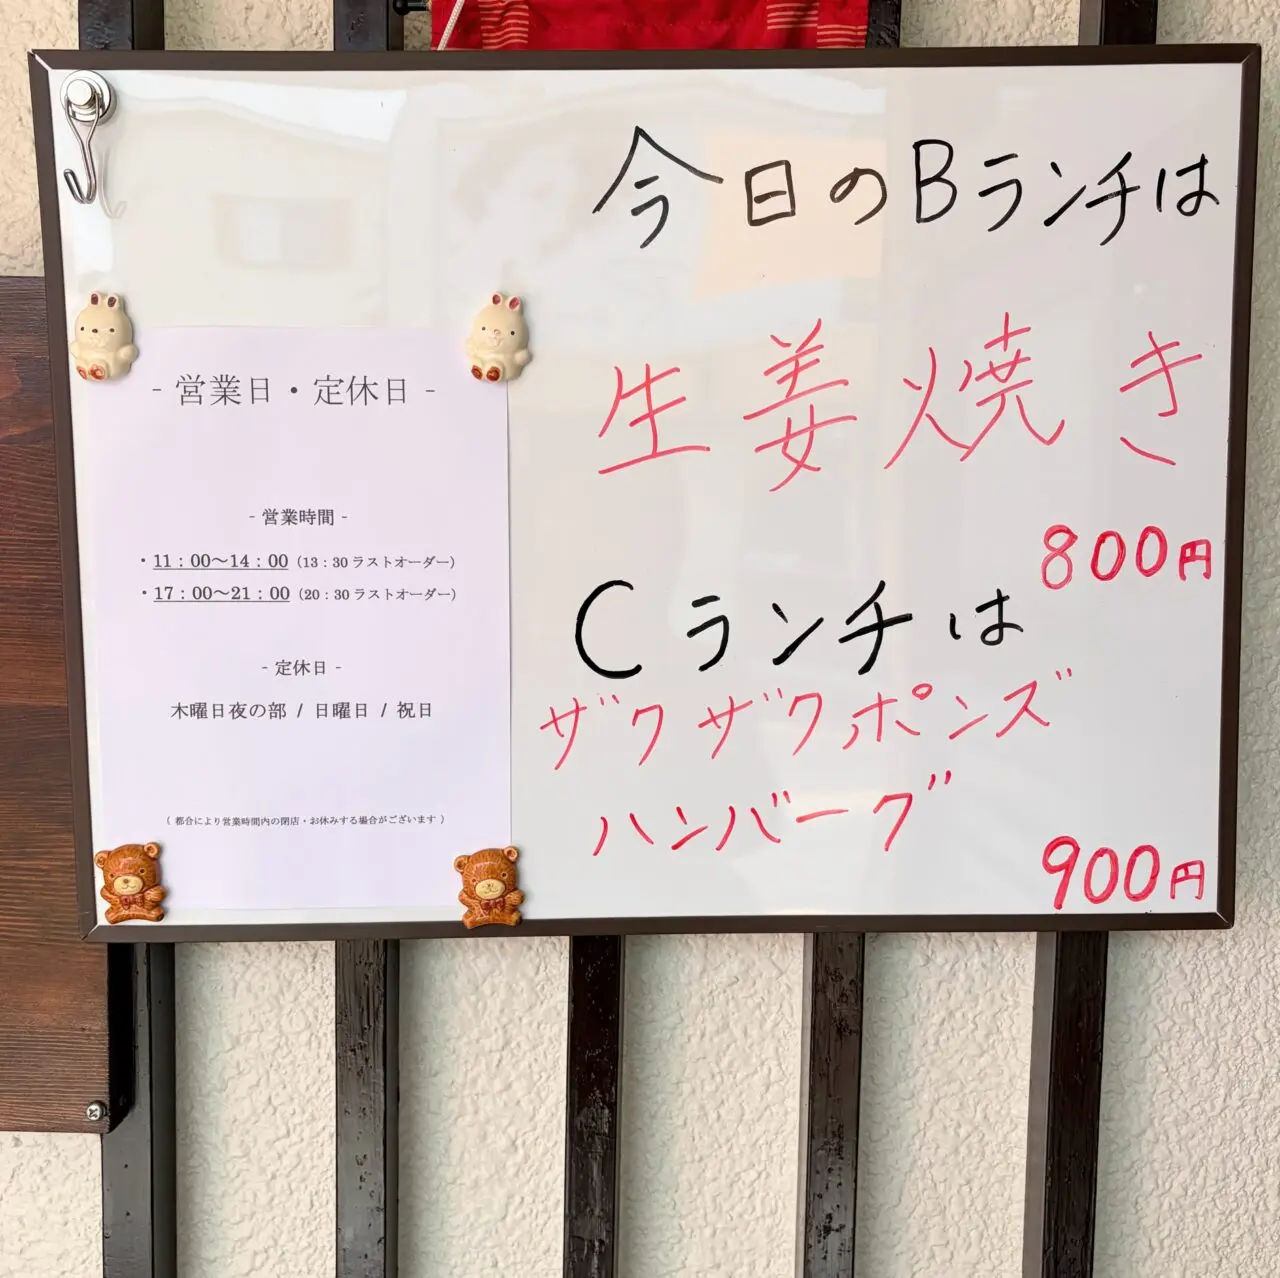 - 営業日・定休日 -
- 営業時間 -
・11：00〜14：00（13：30 ラストオーダー）
・17：00〜21：00（20：30 ラストオーダー）
- 定休日 -
木曜日夜の部 / 日曜日 / 祝日
（ 都合により営業時間内の閉店・お休みする場合がございます ）
今日のBランチは
生姜焼き
800円
Cランチは
ザクザクポンズ
ハンバーグ
900円